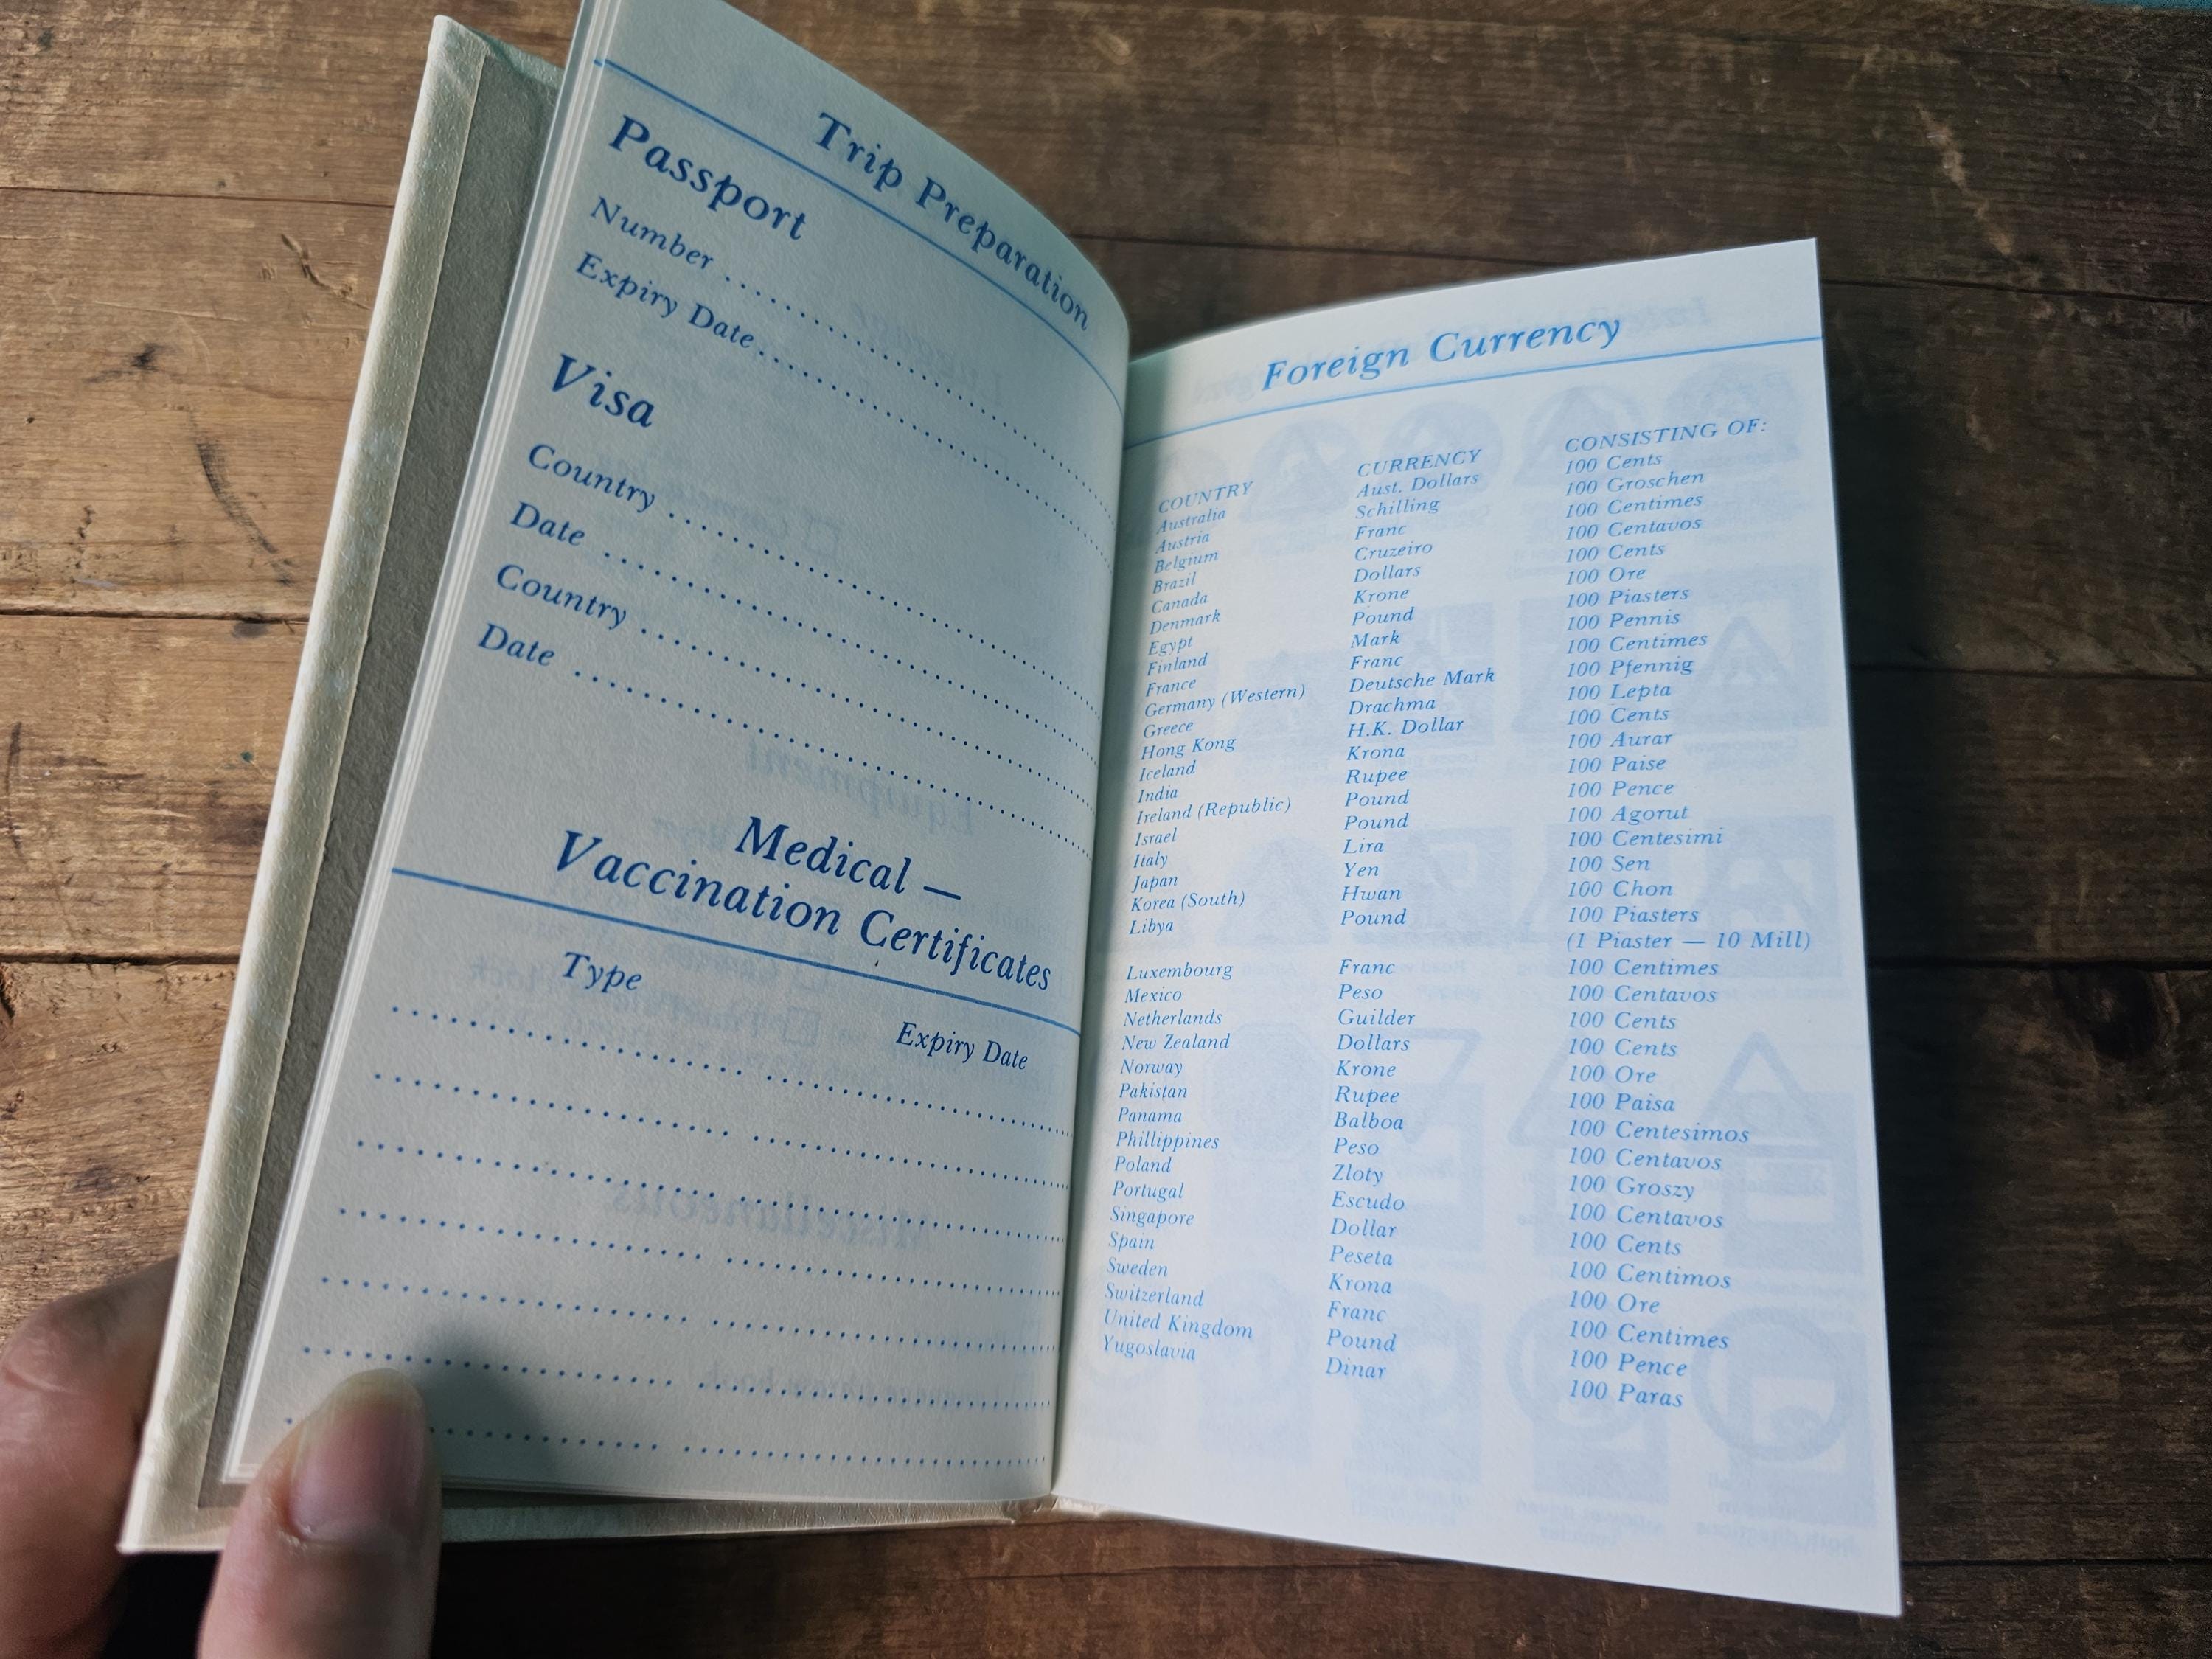 Trip Preparation
Passport
Number
Expiry Date
Visa
Country
Date
Country
Date
Medical —
Vaccination Certificates
Type
Expiry Date
Foreign Currency
COUNTRY CURRENCY CONSISTING OF:
Australia Aust. Dollars 100 Cents
Austria Schilling 100 Groschen
Belgium Franc 100 Centimes
Brazil Cruzeiro 100 Centavos
Canada Dollars 100 Cents
Denmark Krone 100 Ore
Egypt Pound 100 Piasters
Finland Mark 100 Pennis
France Franc 100 Centimes
Germany (Western) Deutsche Mark 100 Pfennig
Greece Drachma 100 Lepta
Hong Kong H.K. Dollar 100 Cents
Iceland Krona 100 Aurar
India Rupee 100 Paise
Ireland (Republic) Pound 100 Pence
Israel Pound 100 Agorut
Italy Lira 100 Centesimi
Japan Yen 100 Sen
Korea (South) Hwan 100 Chon
Libya Pound 100 Piasters
(1 Piaster — 10 Mill)
Luxembourg Franc 100 Centimes
Mexico Peso 100 Centavos
Netherlands Guilder 100 Cents
New Zealand Dollars 100 Cents
Norway Krone 100 Ore
Pakistan Rupee 100 Paisa
Panama Balboa 100 Centesimos
Phillippines Peso 100 Centavos
Poland Zloty 100 Groszy
Portugal Escudo 100 Centavos
Singapore Dollar 100 Cents
Spain Peseta 100 Centimos
Sweden Krona 100 Ore
Switzerland Franc 100 Centimes
United Kingdom Pound 100 Pence
Yugoslavia Dinar 100 Paras